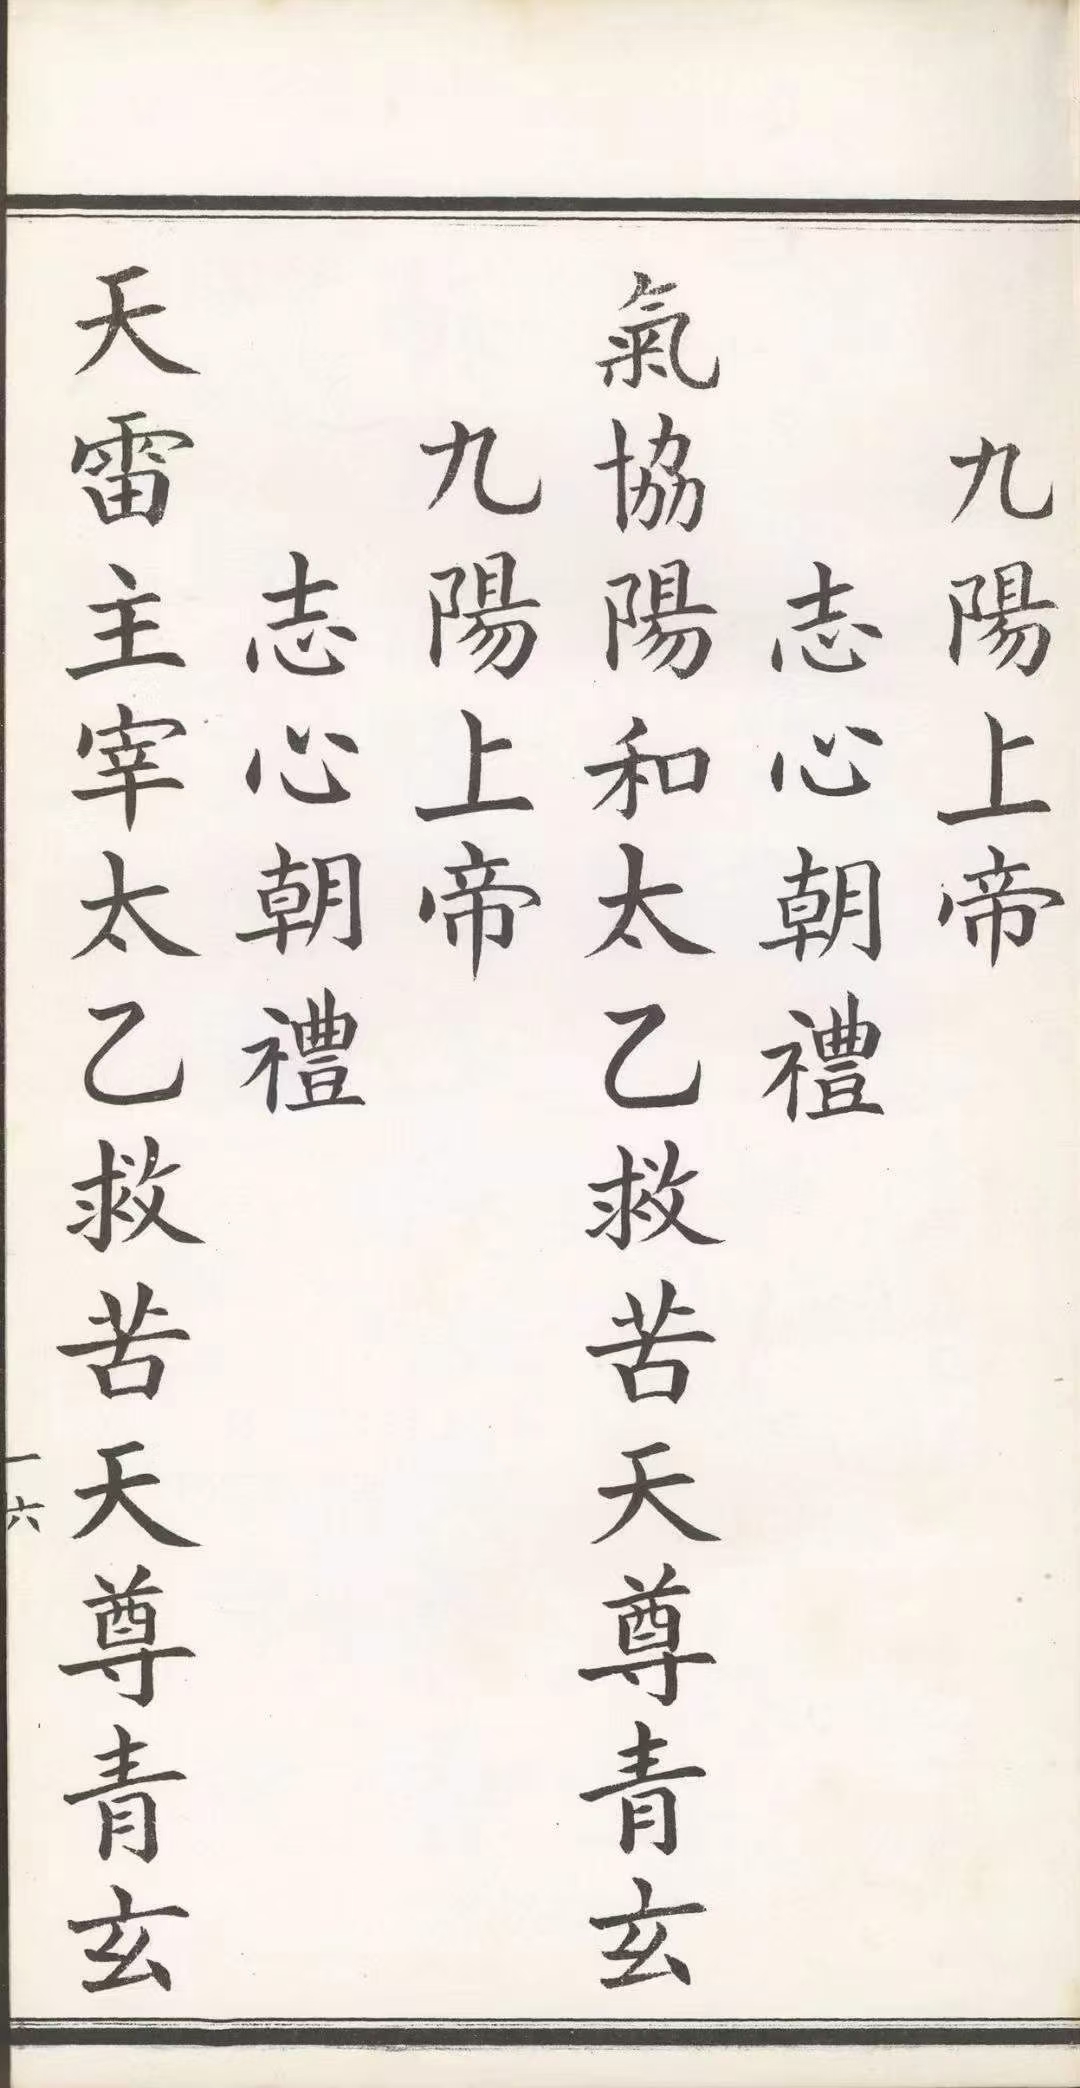 九陽上帝
志心朝禮
氣協陽和太乙救苦天尊青玄
九陽上帝
志心朝禮
天雷主宰太乙救苦天尊青玄
一六